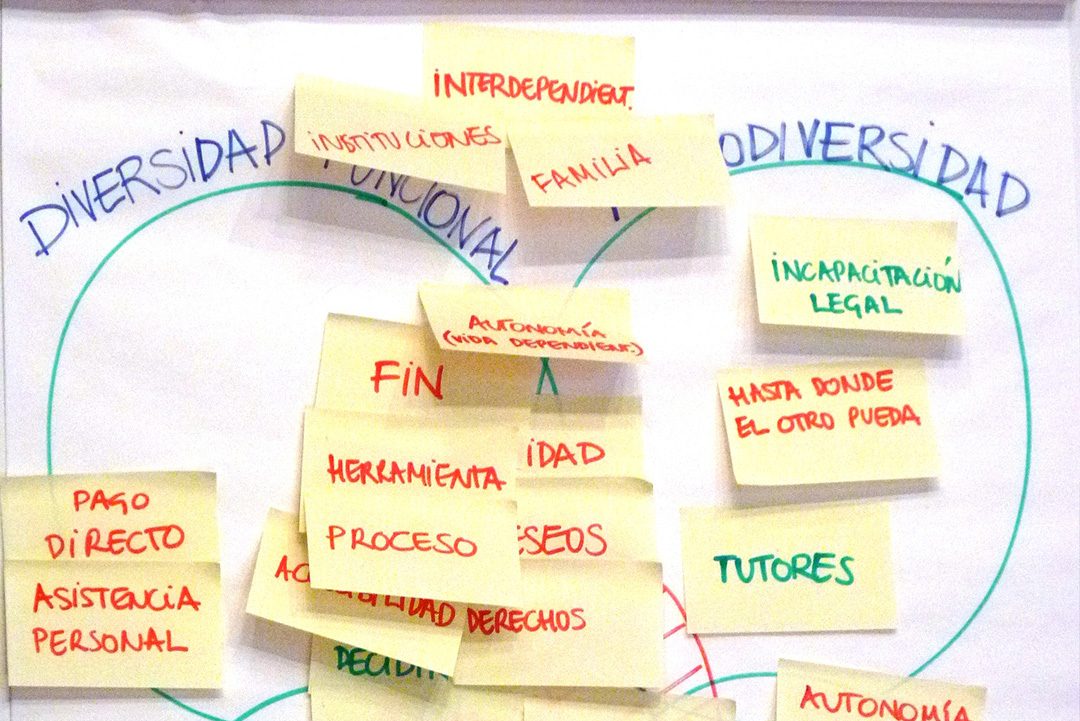 INTERDEPENDIENT.
INSTITUCIONES
FAMILIA
DIVERSIDAD FUNCIONAL
ODIVERSIDAD
INCAPACITACIÓN
LEGAL
AUTONOMÍA
(VIDA DEPENDIENT.)
FIN
HASTA DONDE
EL OTRO PUEDA
HERRAMIENTA
IDAD
PAGO
DIRECTO
PROCESO
ESEOS
TUTORES
ASISTENCIA
PERSONAL
DERECHOS
DECIDIR
AUTONOMÍA